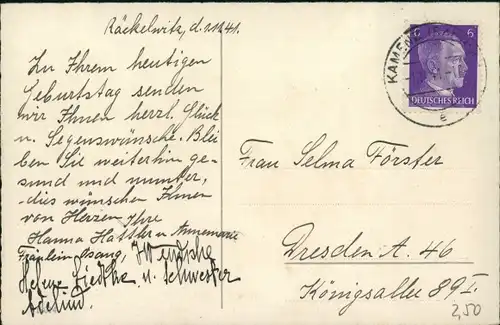 Räckelwitz, d. 1.12.41.
Zu Ihrem heutigen
Geburtstag senden
wir Ihnen herzl. Glück
u. Segenswünsche. Blei
ben Sie weiterhin ge-
sund und munter,
dies wünschen Ihnen
von Herzen Ihre
Hanna Hattler u. Annemarie
Fräulein
Helene Liedtke u. Schwester
Adelind.
KAMENZ
e
6
DEUTSCHES REICH
Frau Selma Förster
Dresden A. 46
Königsallee 89 I.
2,50